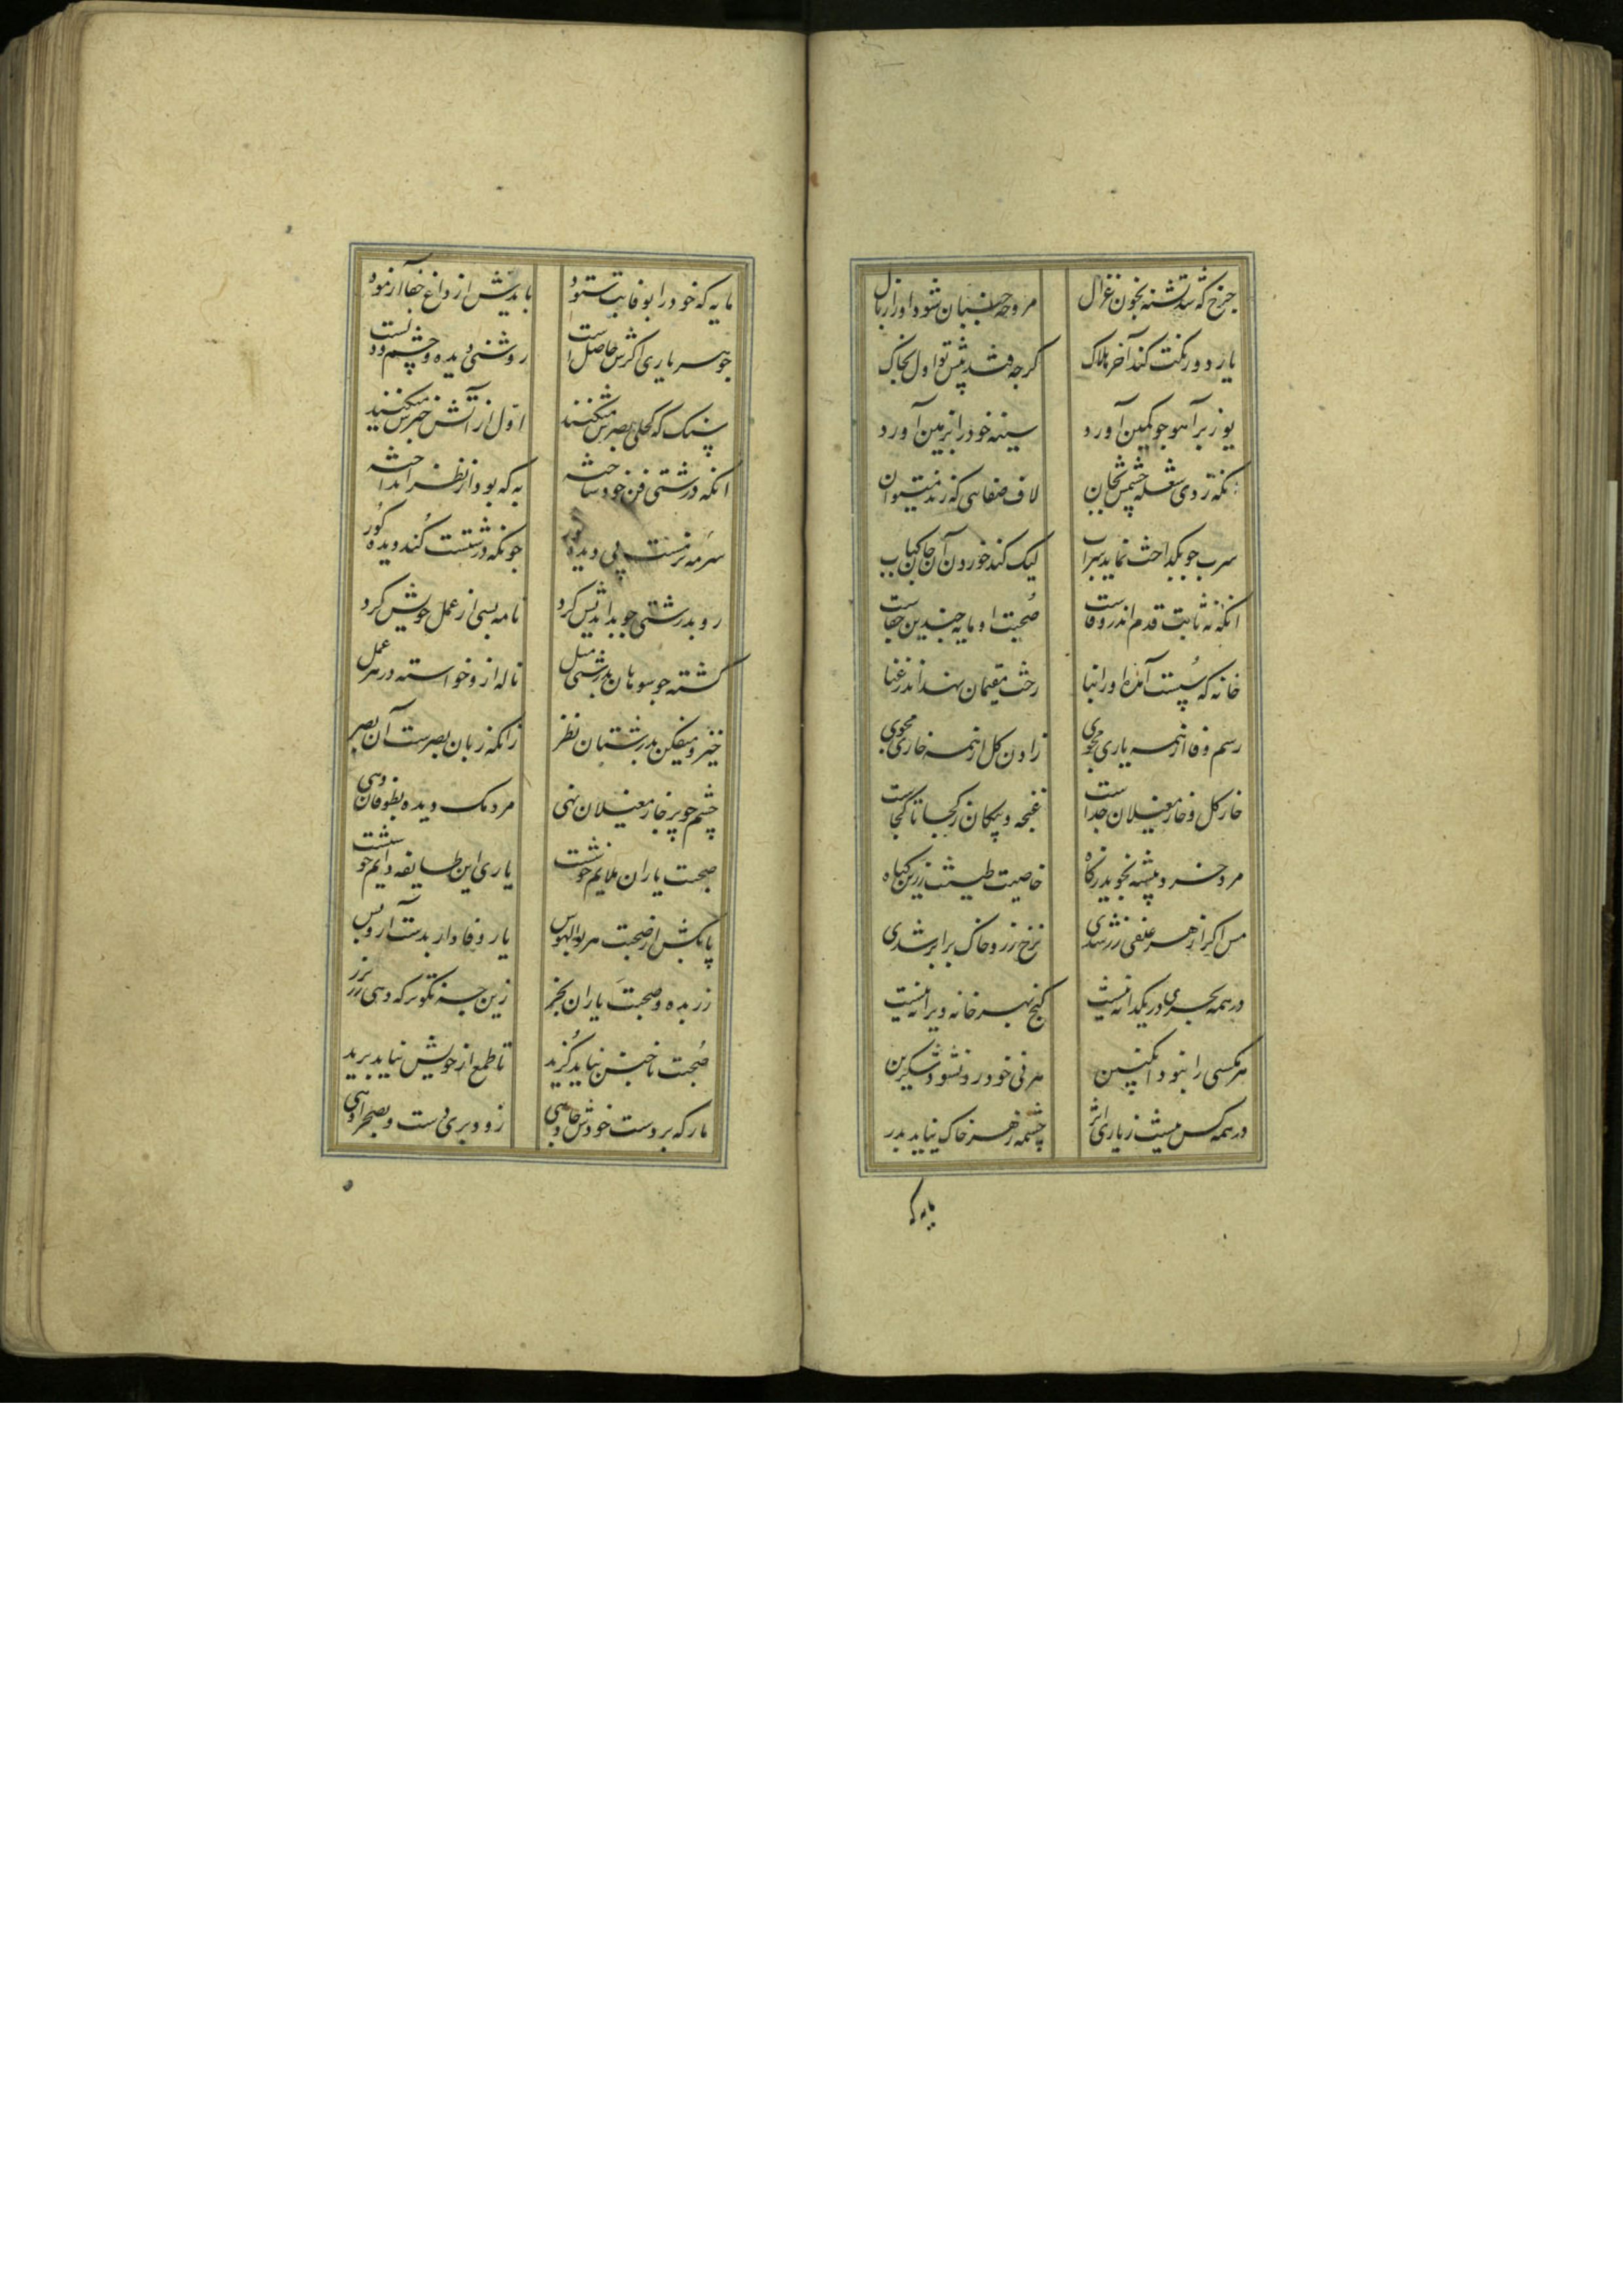 چرخ که شد تشنه بخون غزال مروحه جنبان شود او را ز بال
یار دو رنگت کند آخر هلاک کرچه فتد پیش تو اول بخاک
یوز بر آهو چو کمین آورد سینه خود را بزمین آورد
لاف صفایی که زند میتوان
سرب چو بگداخت نماید سراب لیک کند خوردن آن جان کباب
آنکه نه ثابت قدم اندر وفاست صحبت او مایه چندین جفاست
خانه که سست آمده او را بنا رخت مقیمان نهد اندر فنا
رسم وفا از همه یاری مجوی زادن کل از همه خاری مجوی
خار کل و خار مغیلان جداست غنچه و پیکان ز کجا تا کجاست
مرد خرد پیشه نجوید ز کاه خاصیت طینت زرین کیاه
مس اکر از هر علفی زر شدی نرخ زر و خاک برابر شدی
در همه بحری در یکدانه نیست کنج بهر خانه ویرانه نیست
هر مکسی را نبود انکبین هر نی خودرو نشود شکرین
در همه کس نیست ز یاری اثر چشمه ز هر خاک نیاید بدر
مایه که
مایه که خود را بوفایت ستود بایدش از داغ جفا آزمود
جوهر یاری اکرش حاصل است روشنی دیده و چشم و
سنک که کحلی بصرش میکنند اول از آتش خبرش میکنند
آنکه درشتی فن خود ساخته به که بود از نظر انداخته
سرمه نرمست پی دیده نور چونکه درشتست کند دیده کور
رو بدرشتی چو بداندیش کرد نامه بسی از عمل خویش کرد
کشته چو سوهان بدرشتی مثل ناله ازو خواسته در هر عمل
خیز و میفکن بدرشتان نظر زانکه زیان بصرست آن بصر
چشم چو بر خار مغیلان نهی مردمک دیده بطوفان دهی
صحبت یاران ملایم خوشست یاری این طایفه دایم خوشست
پا بکش از صحبت هر بوالهوس یار وفادار بدست آر و بس
زر بده و صحبت یاران بخر زین چه نکوتر که دهی زر بزر
صحبت ناجنس نباید کزید تا طمع از خویش نباید برید
مار که بر دست خودش جا دهی زود بری دست و بصحرا دهی